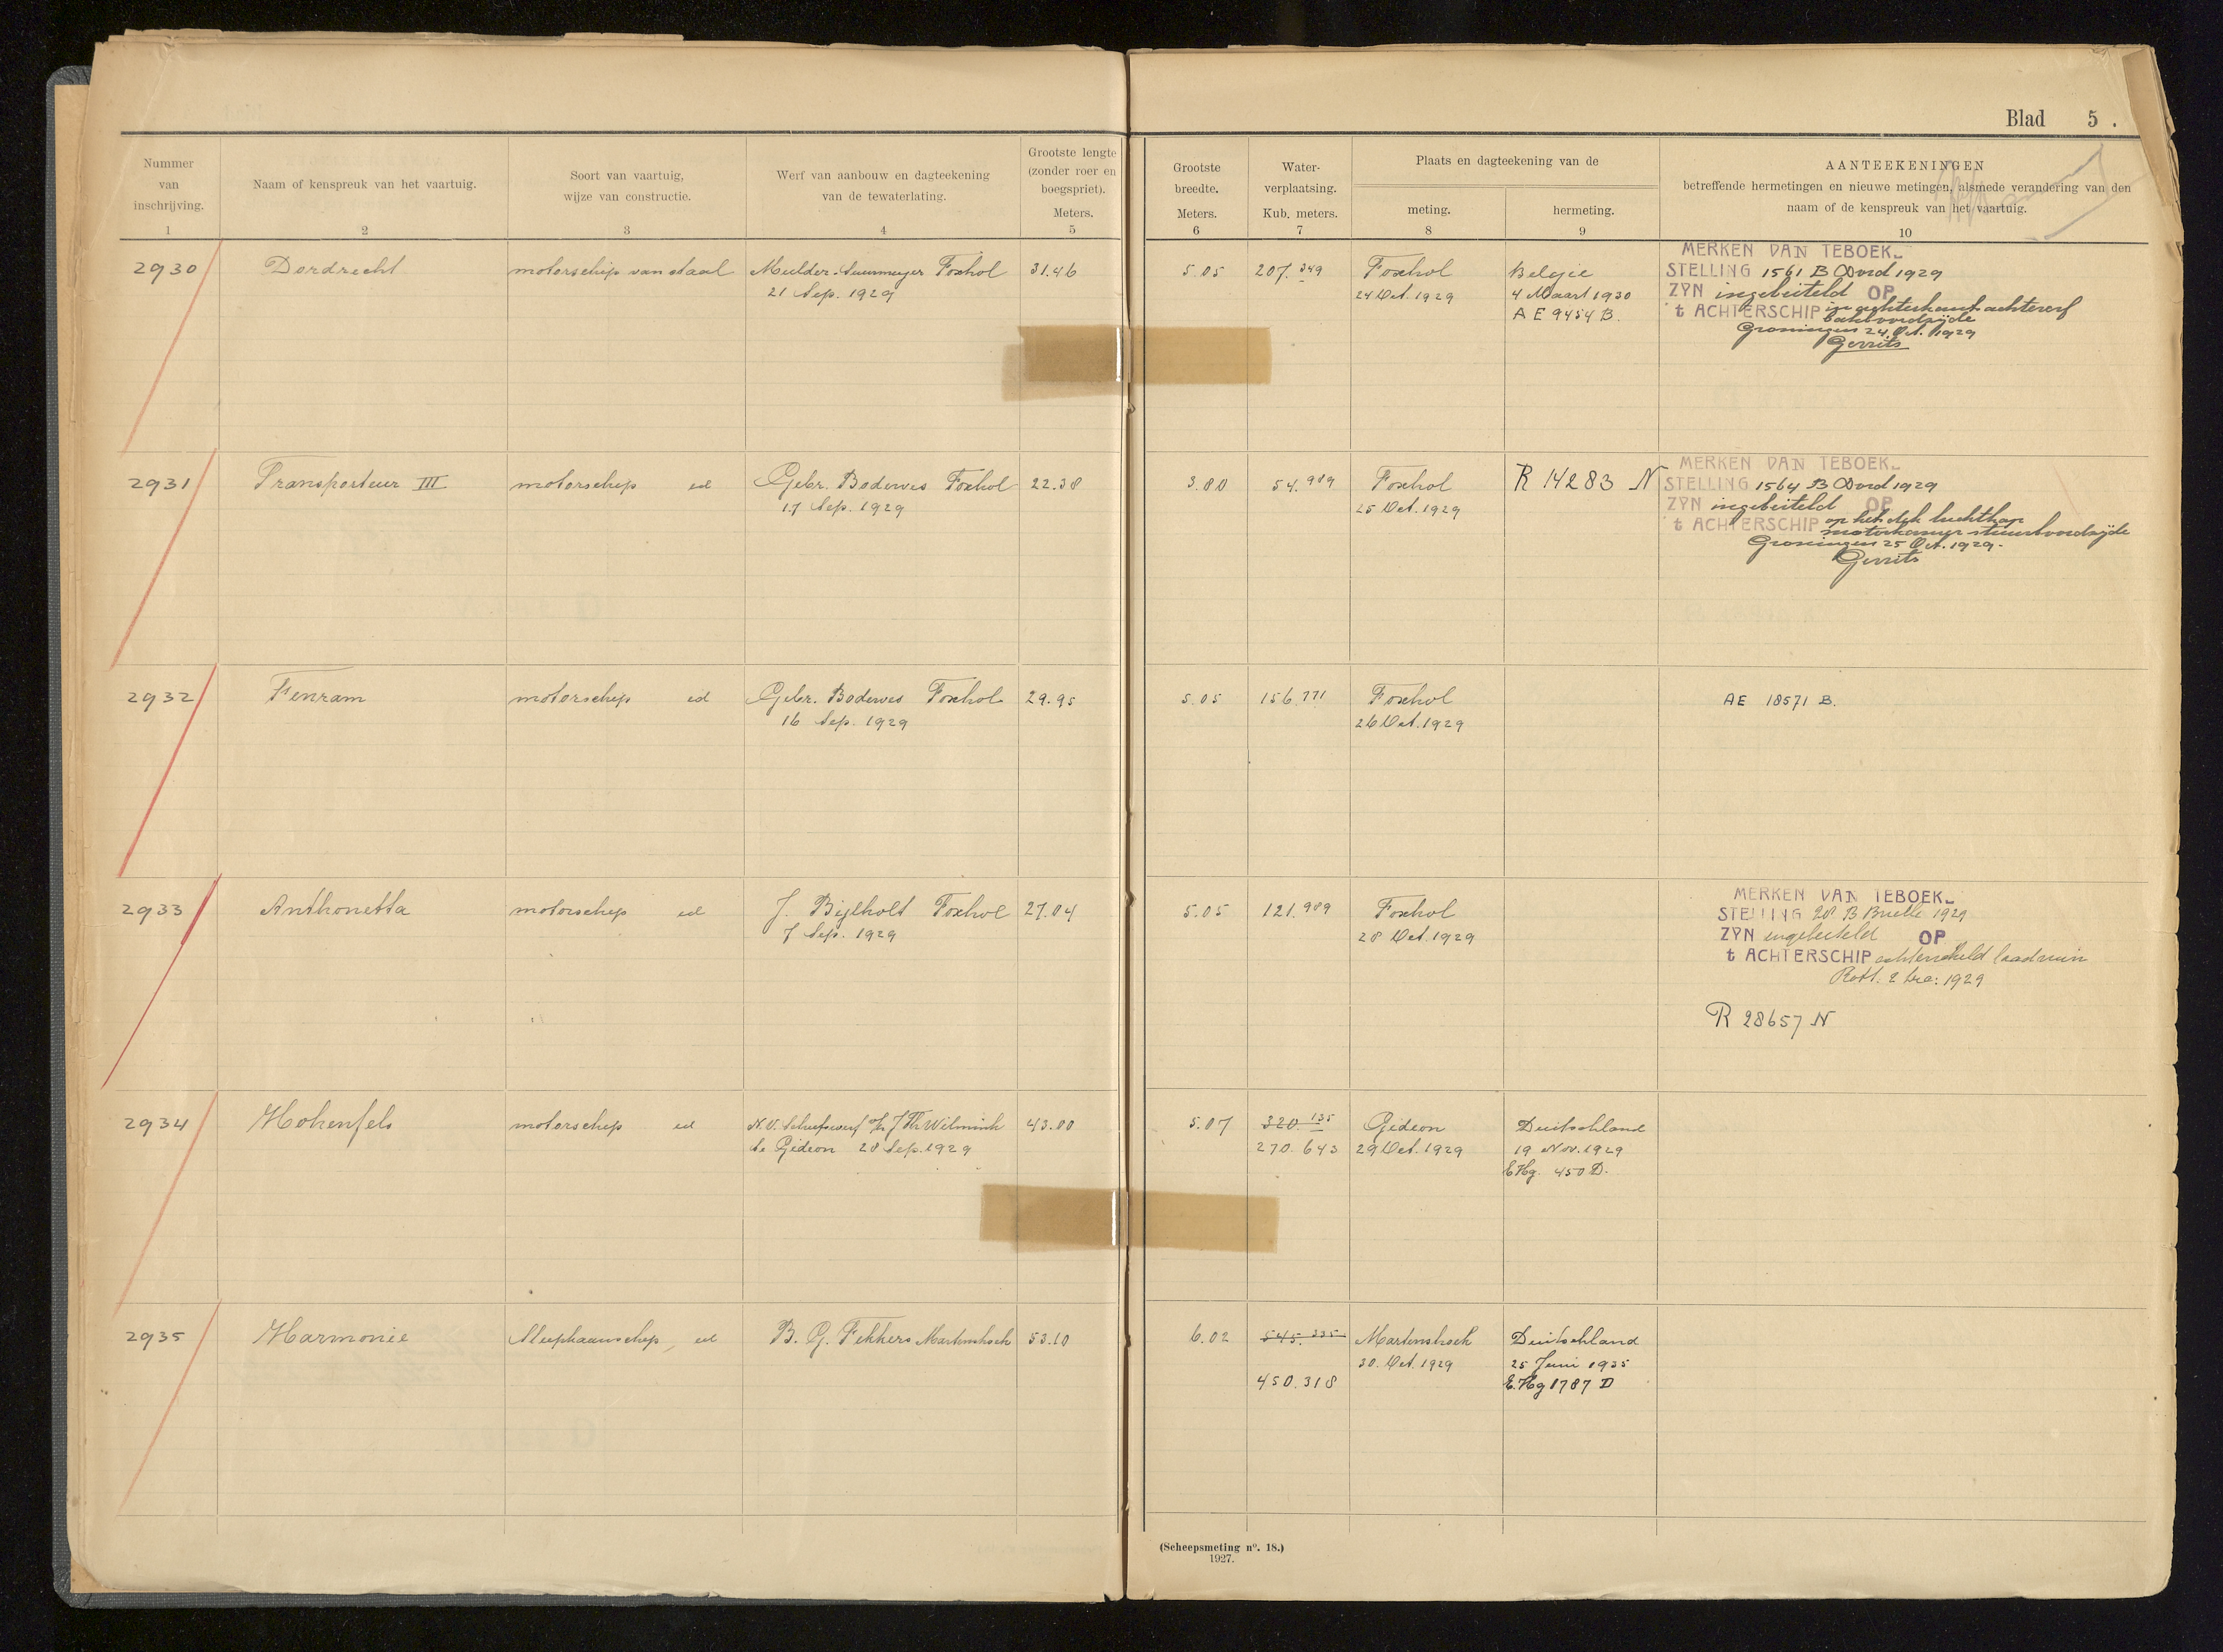 Blad 5.
Nummer van inschrijving.
Naam of kenspreuk van het vaartuig.
Soort van vaartuig, wijze van constructie.
Werf van aanbouw en dagteekening van de tewaterlating.
Grootste lengte (zonder roer en boegspriet). Meters.
Grootste breedte. Meters.
Water-verplaatsing. Kub. meters.
Plaats en dagteekening van de
meting.
hermeting.
AANTEEKENINGEN
betreffende hermetingen en nieuwe metingen, alsmede verandering van den
naam of de kenspreuk van het vaartuig.
1 2 3 4 5 6 7 8 9 10
2930 Dordrecht motorschip van staal Mulder. Suurmeyer Foxhol 31.46 5.05 207.349 Foxhol België
21 Sep. 1929 24 Oct. 1929 4 Maart 1930
AE 9454 B.
MERKEN VAN TEBOEK-
STELLING 1561 B Dord 1929
ZYN ingebeiteld OP
't ACHTERSCHIP in achterkant
bakboordzijde
Groningen 24 Oct. 1929
Gerrits
2931 Transporteur III motorschip id Gebr. Bodewes Foxhol 22.38 3.80 54.989 Foxhol R 14283 N
17 Sep. 1929 25 Oct. 1929
MERKEN VAN TEBOEK-
STELLING 1564 B Dord 1929
ZYN ingebeiteld OP
't ACHTERSCHIP op het dek luchtkap
motorkamer stuurboordzijde
Groningen 25 Oct. 1929.
Gerrits
2932 Fenram motorschip id Gebr. Bodewes Foxhol 29.95 5.05 156.771 Foxhol AE 18571 B.
16 Sep. 1929 26 Oct. 1929
2933 Anthonetta motorschip id J. Bijlholt Foxhol 27.04 5.05 121.989 Foxhol
7 Sep. 1929 28 Oct. 1929
MERKEN VAN TEBOEK-
STELLING 28 B Brielle 1929
ZYN ingebeiteld OP
't ACHTERSCHIP achterschild laadruim
Rott. 2 Dec. 1929
R 28657 N
2934 Hohenfels motorschip id N.V. Scheepswerf v/h J Th Wilmink 43.00 5.07 320.135 Gideon Deutschland
te Gideon 28 Sep. 1929 270.643 29 Oct. 1929 19 Nov. 1929
E Hg. 450 D.
2935 Harmonie Sleepkaanschip, id B. G. Fekkers Martenshoek 53.10 6.02 545.335 Martenshoek Deutschland
30. Oct. 1929 25 Juni 1935
450.318 E. Hg 1787 D
(Scheepsmeting no. 18.)
1927.